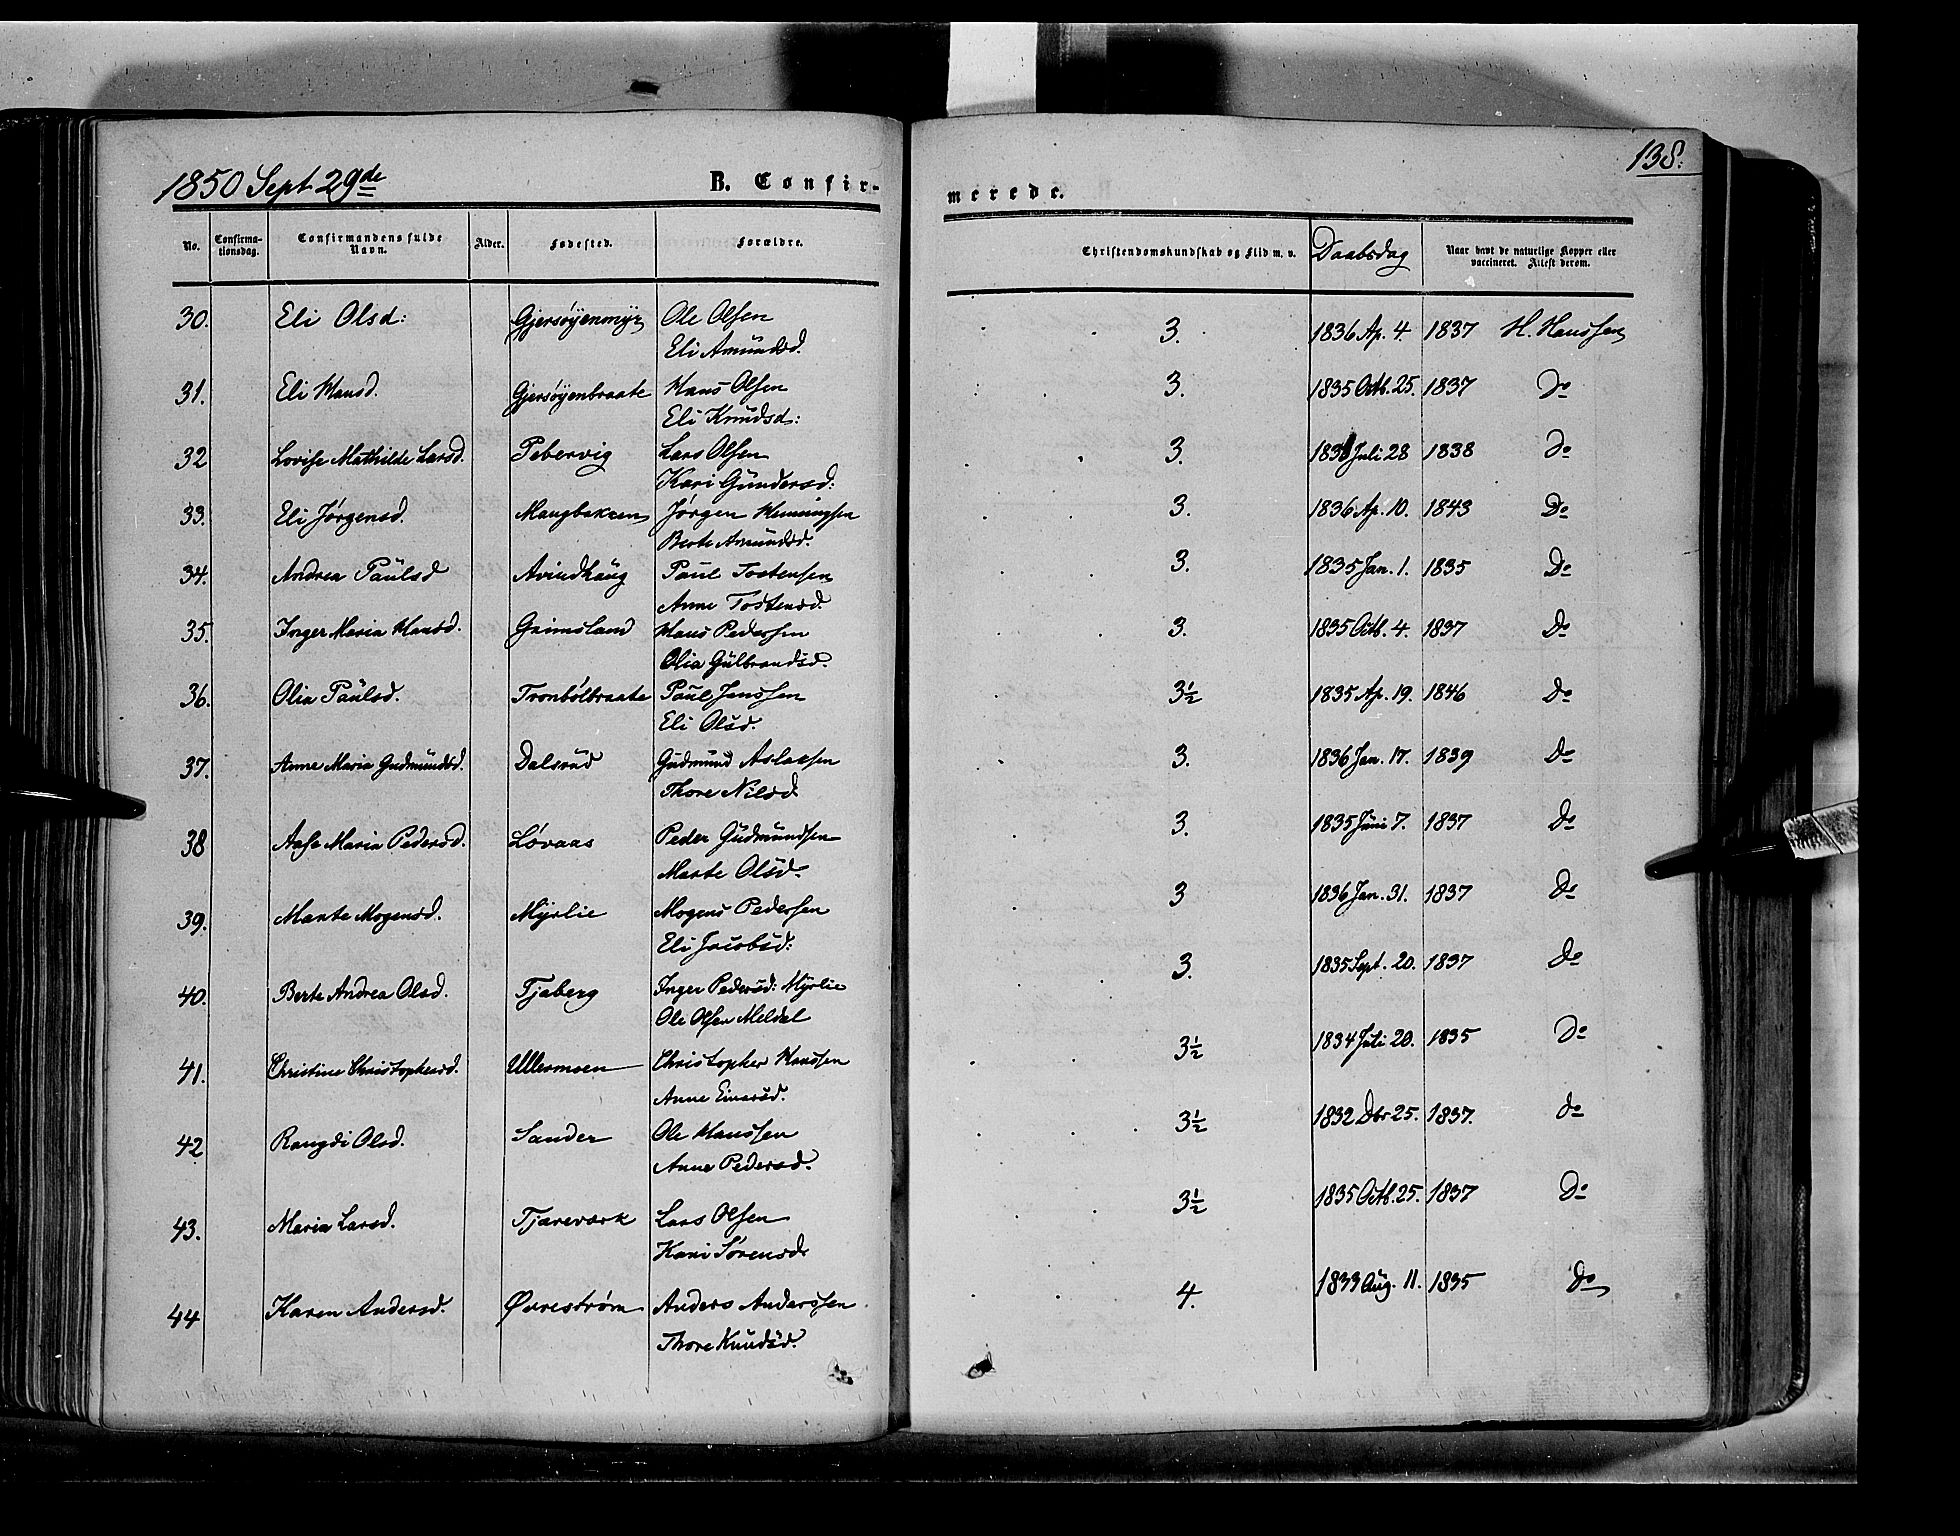 1850 Sept 29de
B. Confir-
merede.
138.
No.
Confirma-
tionsdag.
Confirmandens fulde
Navn.
Alder.
Fødested.
Forældre.
Christendomskundskab og Flid m. v.
Daabsdag
Naar havt de naturlige Kopper eller
vaccineret. Attest derom.
30. Eli Olsd: Gjersøyenmyr Ole Olsen 3. 1836 Ap. 4. 1837 H. Hanssen
Eli Amundsd.
31. Eli Hansd. Gjersøyenbraate Hans Olsen 3. 1835 Octb. 25. 1837 Do
Eli Knudsd:
32 Lovise Mathilde Larsd. Pebervig Lars Olsen 3. Juli 28 1838 Do
Kari Gundersd:
33. Eli Jørgensd. Haugbakken Jørgen Henningsen 3. 1836 Ap. 10. 1843 Do
Berte Amundsd.
34. Andrea Paulsd Avindhaug Paul Tostensen 3. 1835 Jan. 1. 1835 Do
Anne Tostensd.
35. Inger Maria Hansd. Grimsland Hans Pedersen 3. 1835 Octb. 4. 1837 Do
Olia Gulbrandsd.
36. Olia Paulsd. Tronbølbraate Paul Jenssen 3½ 1835 Ap. 19. 1846 Do
Eli Olsd.
37. Anne Maria Gudmundsd. Dalsrud Gudmund Aslaksen 3. 1836 Jan. 17. 1839 Do
Thore Nilsd
38 Aase Maria Pedersd. Løvaas Peder Gudmundsen 3. 1835 Juni 7. 1837 Do
Marte Olsd.
39. Marte Mogensd. Myrlie Mogens Pedersen 3 1836 Jan. 31. 1837 Do
Eli Jacobsd:
40. Berte Andrea Olsd. Tjaberg Inger Pedersd: Myrlie 3. 1835 Sept. 20. 1837 Do
Ole Olsen Meldal
41. Christine Christophersd. Ullermoen Christopher Hanssen 3½ 1834 Juli 20. 1835 Do
Anne Einarsd.
42 Rangdi Olsd. Sander Ole Hanssen 3½ 1832 Dbr 25. 1837. Do
Anne Pedersd.
43. Maria Larsd. Tjæreværk Lars Olsen 3½ 1835 Octb. 25. 1837 Do
Kari Sørensd
44 Karen Andersd. Øvrestrøm Anders Anderssen 4. 1833 Aug. 11. 1835 Do
Thore Knudsd.